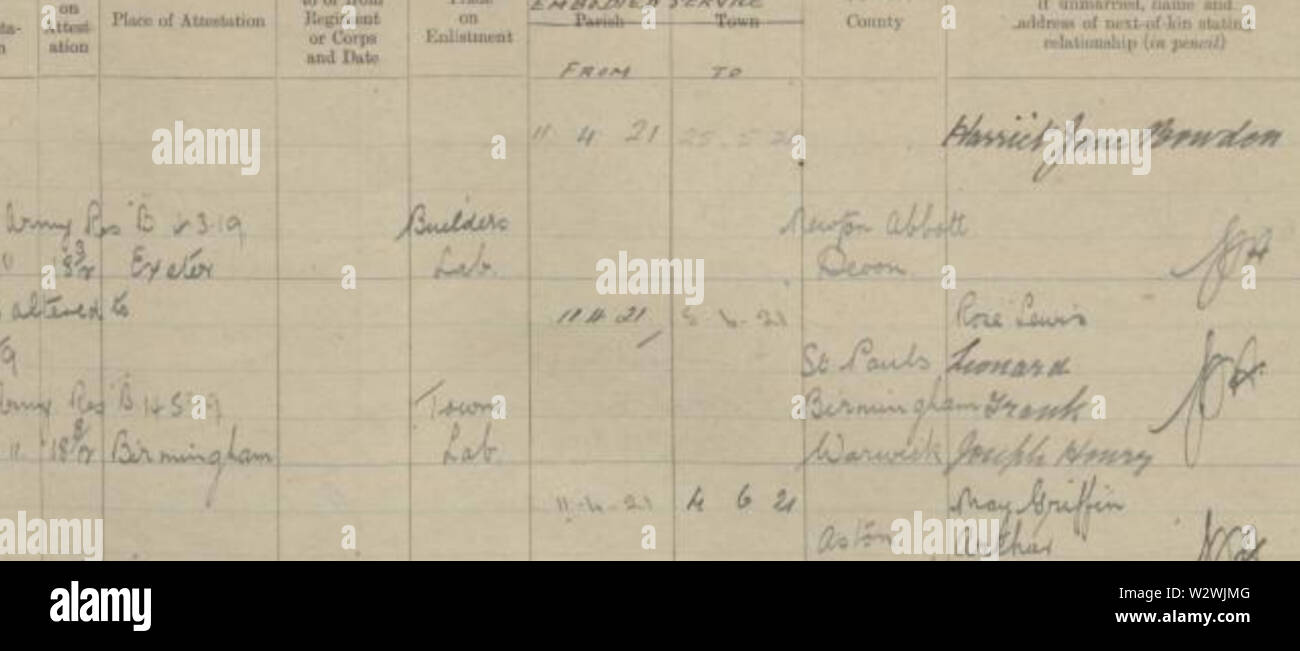 on
Attest-
ation
Place of Attestation
to or from
Regiment
or Corps
and Date
Trade
on
Enlistment
EMBODIED SERVICE
Parish
Town
County
if unmarried, name and
address of next-of-kin stating
relationship (in pencil)
FROM
TO
11 4 21
Harriet Jane Bowden
Army Res B
Builders
Newton Abbott
" 18 3/12 Exeter
Lab.
Devon
altered to
11 4 21
Rose Lewis
St Pauls
Leonard
Army Res B
Town
Birmingham
Frank
" Birmingham
Lab
Warwick
Joseph Henry
4 6 21
May Griffin
Aston
Arthur
alamy
a
alamy stock photo
W2WJMG
www.alamy.com